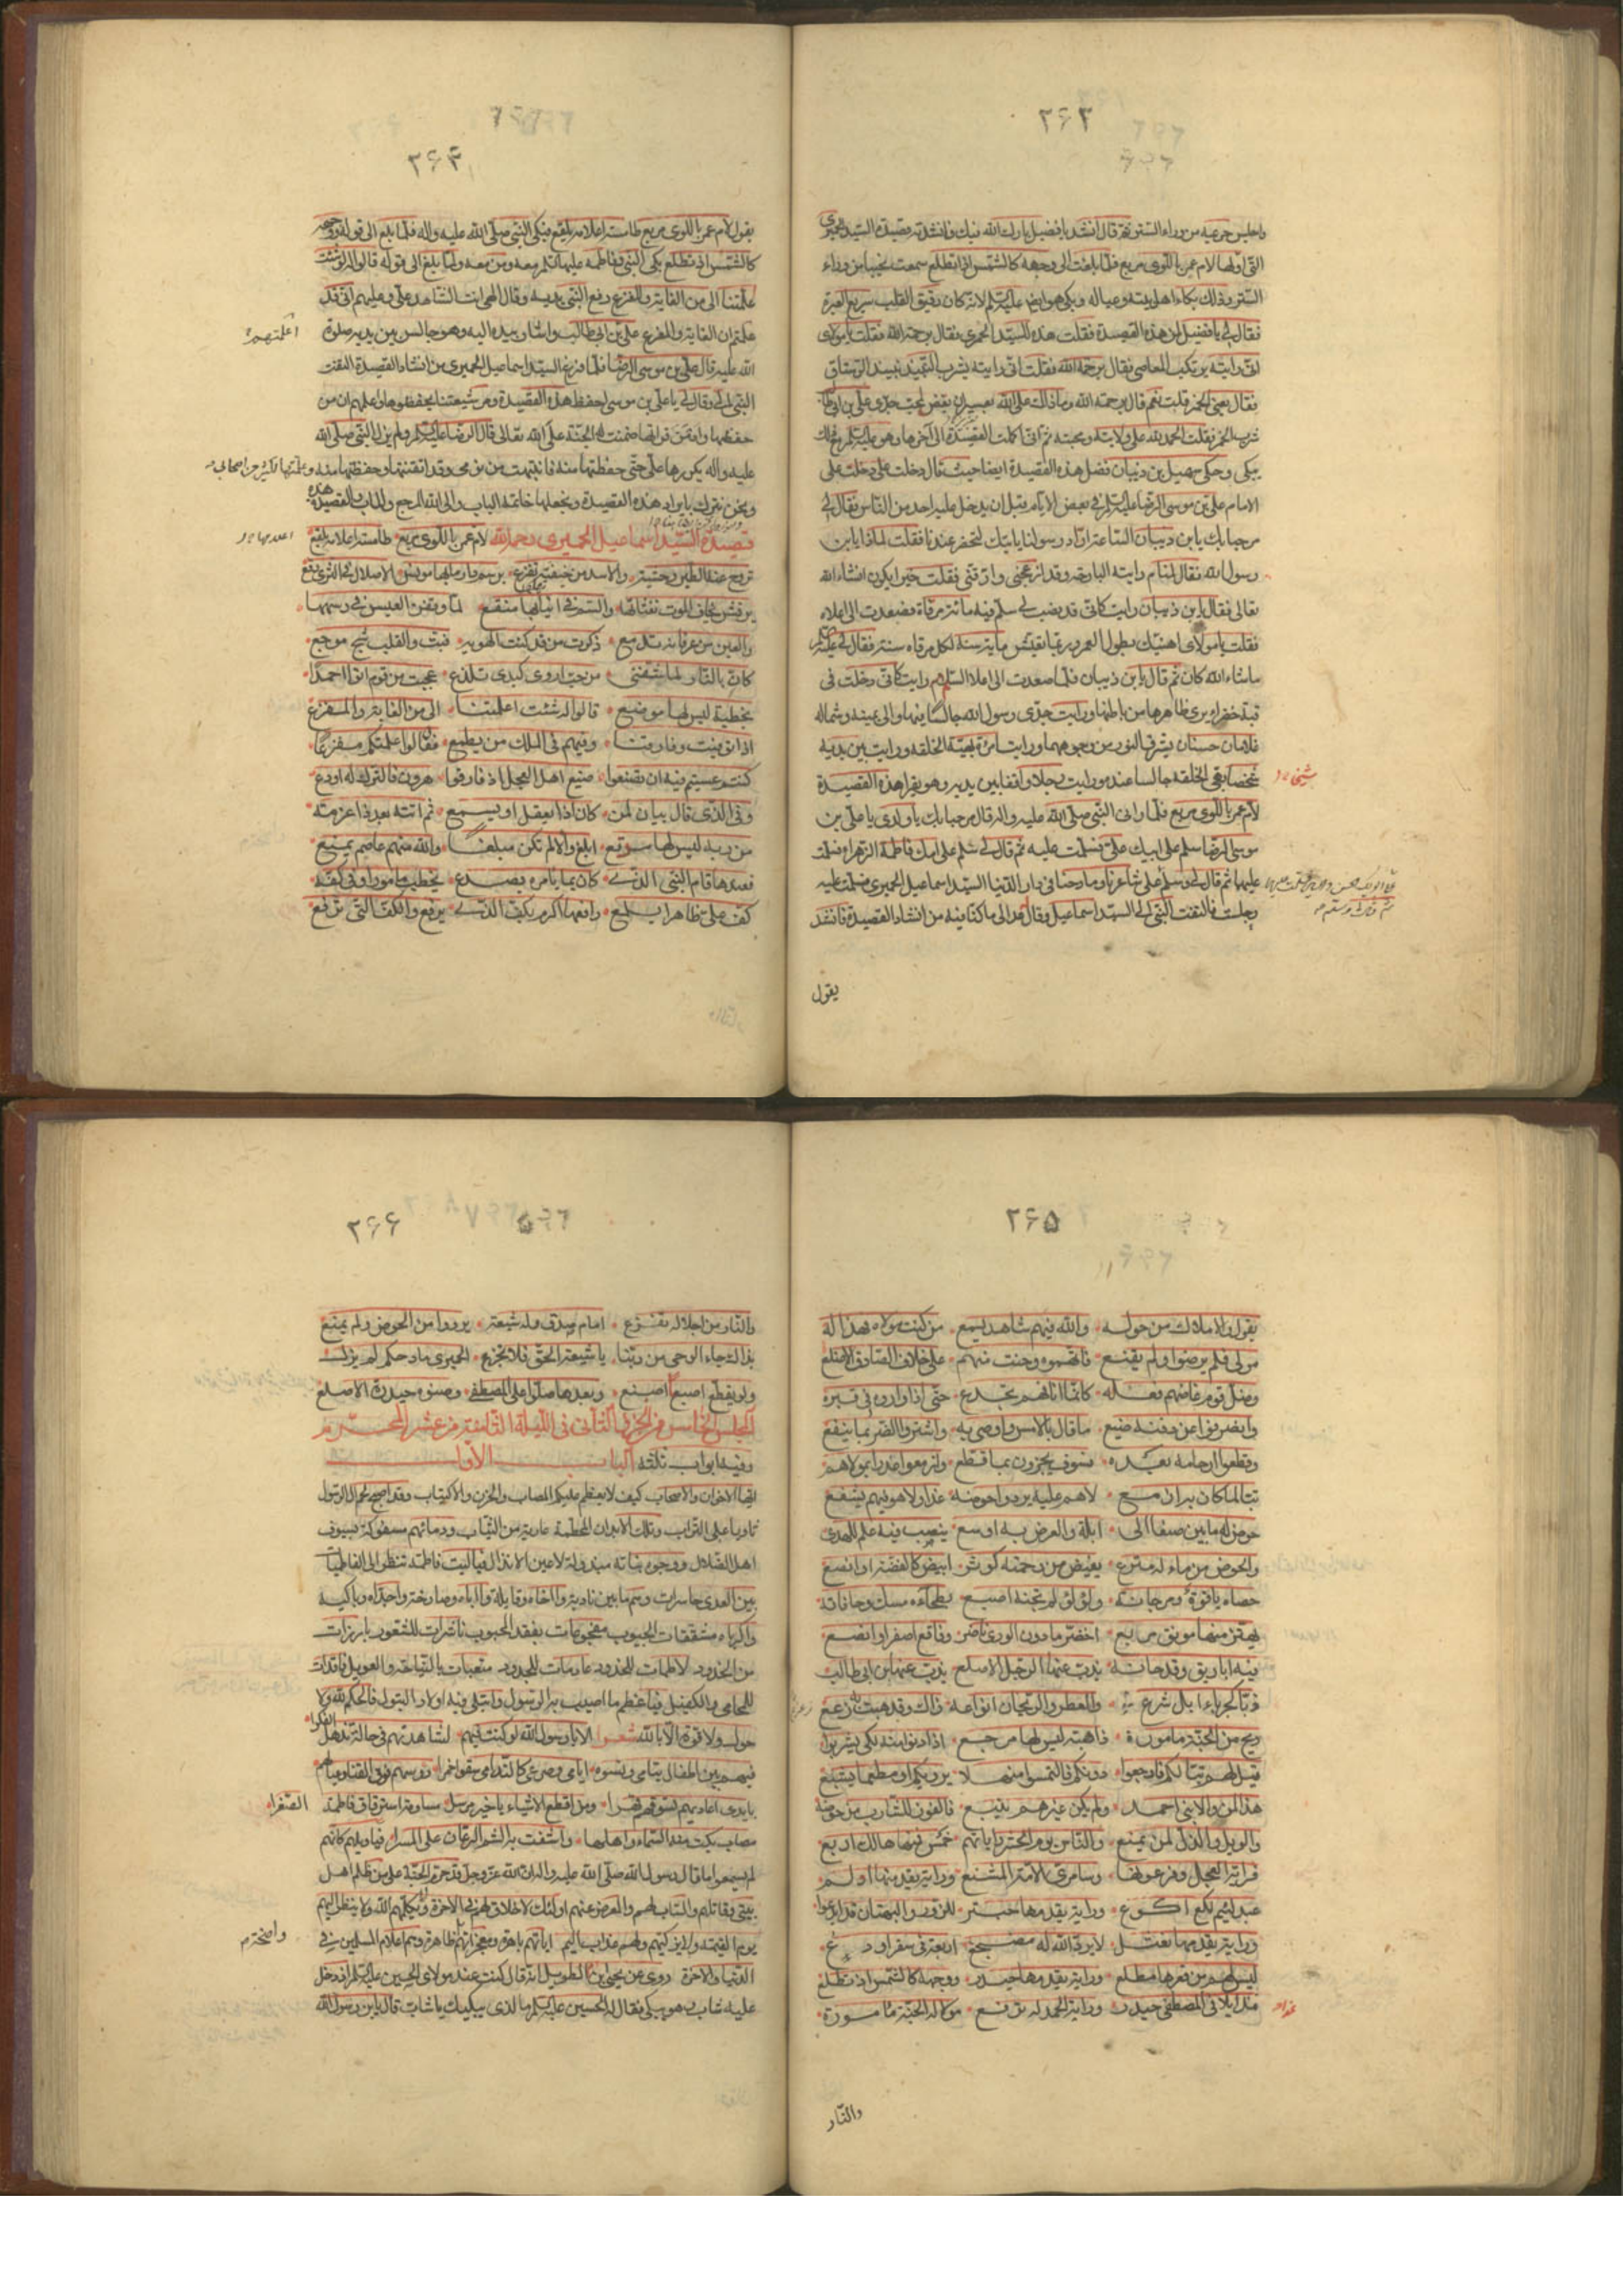 ۲۶۳
واجلس حرمه من وراء الستر ثم قال انشد يا فضيل بارك الله فيك فانشدته قصيدة السيد الحميرى
التى اولها لام عمرو باللوى مربع فلما بلغت الى ووجهه كالشمس اذا تطلع سمعت نحيبا من وراء
الستر وذلك بكاء اهل بيته وعياله وبكى هو ايضا عليه السلام لانه كان رقيق القلب سريع العبرة
فقال لى يا فضيل لمن هذه القصيدة فقلت هذه للسيد الحميرى فقال يرحمه الله فقلت يا مولاى
انى رايته يرتكب المعاصى فقال يرحمه الله فقلت انى رايته يشرب النبيذ نبيذ الرستاق
فقال يعنى الخمر قلت نعم قال يرحمه الله وما ذلك على الله بعسير ان يغفر لمحب جدى على بن ابى طا
شرب الخمر فقلت الحمد لله على ولايته ومحبته ثم انى اكملت القصيدة الى آخرها وهو عليه السلام مع ذلك
يبكى وحكى سهيل بن ذبيان فضل هذه القصيدة ايضا حيث قال دخلت على دخلت على
الامام على بن موسى الرضا عليه السلام فى بعض الايام قبل ان يدخل عليه احد من الناس فقال لى
مرحبا بك يا بن ذبيان الساعة اراد رسولنا ياتيك لتحضر عندنا فقلت لماذا يا بن
رسول الله فقال لمنام رايته البارحة وقد ازعجنى وارقنى فقلت خيرا يكون انشاء الله
تعالى فقال يا بن ذبيان رايت كانى قد نصب لى سلم فيه مائة مرقاة فصعدت الى اعلاه
فقلت يا مولاى اهنيك بطول العمر وربما تعيش ماية سنة لكل مرقاة سنة فقال لى عليه السلام
ماشاء الله كان ثم قال يا بن ذبيان فلما صعدت الى اعلا السلم رايت كانى دخلت فى
قبة خضراء يرى ظاهرها من باطنها ورايت جدى رسول الله جالسا فيها والى يمينه وشماله
غلامان حسنان يشرق النور من وجوههما ورايت امراة بهية الخلقة ورايت بين يديه
شخصا بهى الخلقة جالسا عنده ورايت رجلا واقفا بين يديه وهو يقرا هذه القصيدة
لام عمرو باللوى مربع فلما رانى النبى صلى الله عليه واله قال مرحبا بك يا ولدى يا على بن
موسى الرضا سلم على ابيك على فسلمت عليه ثم قال لى سلم على امك فاطمة الزهراء فسلمت
عليها ثم قال لى وسلم على شاعرنا ومادحنا فى دار الدنيا السيد اسماعيل الحميرى فسلمت عليه
وجلست فالتفت النبى الى السيد اسماعيل وقال عد الى ما كنا فيه من انشاد القصيدة فانشد
يقول
۲۶۴
يقول لام عمرو باللوى مربع طامسة اعلامه بلقع فبكى النبى صلى الله عليه واله فلما بلغ الى قوله ووجهه
كالشمس اذ تطلع بكى النبى وفاطمة عليها السلام معه ومن معه ولما بلغ الى قوله قالوا له لو شئت
علمتنا الى من الغاية والمفزع رفع النبى يديه وقال الهى انت الشاهد على وعليهم انى قد
علمتم ان الغاية والمفزع على بن ابى طالب واشار بيده اليه وهو جالس بين يديه صلوة
اعلمتهم
الله عليه قال على بن موسى الرضا فلما فرغ السيد اسماعيل الحميرى من انشاد القصيدة التفت
النبى الى وقال لى يا على بن موسى احفظ هذه القصيدة ومر شيعتنا بحفظها واعلمهم ان من
حفظها وادمن قراتها ضمنت له الجنة على الله تعالى قال الرضا عليه السلام ولم يزل النبى صلى الله
عليه واله يكررها على حتى حفظتها منه فانتبهت من نومى وقد اتقنتها وحفظتها منه وعلمتها لكثير من اصحابى
ونحن نتبرك بايراد هذه القصيدة ونجعلها خاتمة الباب والى الله المرجع والماب والقصيدة هذه
قصيدة السيد اسماعيل الحميرى رحمه الله لام عمرو باللوى مربع طامسة اعلامه بلقع
تروح عنه الطير وحشية والاسد من خيفته تفزع برسم دار ما بها مونس الا صلال فى الثرى وقع
رقش يخاف الموت نفثاتها والسم فى انيابها منقع لما وقفن العيس فى رسمها
والعين من عرفانه تدمع ذكرت من قد كنت الهو به فبت والقلب شج موجع
كان بالنار لما شفنى من حب اروى كبدى تلذع عجبت من قوم اتوا احمدا
بخطبة ليس لها موضع قالوا له لو شئت اعلمتنا الى من الغاية والمفزع
اذا توفيت وفارقتنا وفيهم فى الملك من يطمع فقال لو اعلمتكم مفزعا
كنتم عسيتم فيه ان تصنعوا صنيع اهل العجل اذ فارقوا هرون فالترك له اودع
وفى الذى قال بيان لمن كان اذا يعقل او يسمع ثم اتته بعد ذا عزمة
من ربه ليس لها مدفع ابلغ والا لم تكن مبلغا والله منهم عاصم يمنع
فعندها قام النبى الذى كان بما يامره يصدع يخطب مامورا وفى كفه
كف على ظاهرا يلمع رافعها اكرم بكف الذى يرفع والكف التى ترفع
۲۶۵
يقول والاملاك من حوله والله فيهم شاهد يسمع من كنت مولاه فهذا له
مولى فلم يرضوا ولم يقنع فاتهموه وحنت منهم على خلاف الصادق الاضلع
وضل قوم غاضهم فعله كانما انافهم تجدع حتى اذا واروه فى قبره
وانصرفوا عن دفنه ضيع ما قال بالامس واوصى به واشتروا الضر بما ينفع
وقطعوا ارحامه بعده فسوف يجزون بما قطع وازمعوا غدرا بمولاهم
تبا لما كان به ازمع لا هم عليه يردوا حوضه غدا ولا هو فيهم يشفع
حوض له ما بين صنعا الى ايلة والعرض به اوسع ينصب فيه علم للهدى
والحوض من ماء له مترع يفيض من رحمته كوثر ابيض كالفضة او انصع
حصاه ياقوت ومرجانة ولؤلؤ لم تجنه اصبع بطحاءه مسك وحافاته
يهتز منها مونق مربع اخضر ما دون الورى ناضر وفاقع اصفر او انصع
فيه اباريق وقدحانه يذب عنها الرجل الاصلع يذب عنها ابن ابى طالب
ذبا كجرباء ابل شرع والعطر والريحان انواعه ذاك وقد هبت به زعزع
ريح من الجنة مامورة ذاهبة ليس لها مرجع اذا دنوا منه لكى يشربوا
قيل لهم تبا لكم فارجعوا دونكم فالتمسوا منهلا يرويكم او مطعما يشبع
هذا لمن والا بنى احمد ولم يكن غيرهم يتبع فالفوز للشارب من حوضه
والويل والذل لمن يمنع والناس يوم الحشر راياتهم خمس فمنها هالك اربع
فراية العجل وفرعونها وسامرى الامة المشنع وراية يقدمها ادلم
عبد لئيم لكع اكوع وراية يقدمها حبتر للزور والبهتان قد ابدعوا
وراية يقدمها نعثل لا برد الله له مضجع اربعة فى سقر اودع
ليس لهم من قعرها مطلع وراية يقدمها حيدر ووجهه كالشمس اذ تطلع
غدا يلاقى المصطفى حيدر وراية الحمد له ترفع مولى له الجنة مامورة
غدا
والنار
۲۶۶
والنار من اجلاله تفزع امام صدق وله شيعة يرووا من الحوض ولم يمنع
بذاك جاء الوحى من ربنا يا شيعة الحق فلا تجزع الحميرى مادحكم لم يزل
ولو يقطع اصبع اصبع وبعدها صلوا على المصطفى وصنوه حيدرة الاصلع
المجلس الخامس من الجزء الثانى فى الليلة الثامنة من عشر المحرم
وفيه ابواب ثلثة الباب الاول
ايها الاخوان والاصحاب كيف لا يعظم عليكم المصاب والحزن والاكتياب وقد اصبح لحم ال الرسول
ثاويا على التراب وتلك الابدان المحطمة عارية من الثياب ودمائهم مسفوكة بسيوف
اهل الضلال ووجوه بناته مبذولة لاعين الانذال فيا ليت فاطمة تنظر الى الفاطميات
بين العدى حاسرات وهم ما بين نادبة وااخاه وقايلة واابتاه وصارخة واجداه وباكية
واكرباه مشققات الجيوب مفجوعات بفقد المحبوب ناشرات للشعور بارزات
من الخدور لاطمات للخدود عادمات للجدود متعبات بالنياحة والعويل فاقدات
للمحامى والكفيل فيا عظم ما اصيب به الرسول وابتلى فيه اولاد البتول فالحكم لله ولا
حول ولا قوة الا بالله شعر الا يا رسول الله لو كنت فيهم لشاهدتهم فى حالة تذهل الفكرا
فبهم بين اطفال يتامى ونسوه ايامى وصرعى كالندامى سقوا خمرا روسهم فوق القنا ونساهم
بايدى اعاديهم تسوقهم قهرا ومن اقطع الاشياء يا خير مرسل مساوقة استرقاق فاطمة الصغرا
مصاب بكت منه السماء واهلها واشفت به الشم الرعان على المسرا فيا ويلهم كانهم
لم يسمعوا ما قال رسول الله صلى الله عليه واله ان الله عز وجل قد حرم الجنة على من ظلم اهل
بيتى وقاتلهم والساب لهم والمعرض عنهم اولئك لا خلاق لهم فى الاخرة ولا يكلمهم الله ولا ينظر اليهم
يوم القيمة ولا يزكيهم ولهم عذاب اليم اياتهم باهرة ومعجزاتهم ظاهرة وهم اعلام المسلمين فى
واضحة م
الدنيا والاخرة روى عن يحيى بن ام الطويل انه قال كنت عند مولاى الحسين عليه السلام اذ دخل
عليه شاب وهو يبكى فقال له الحسين عليه السلام ما الذى يبكيك يا شاب قال يا بن رسول الله